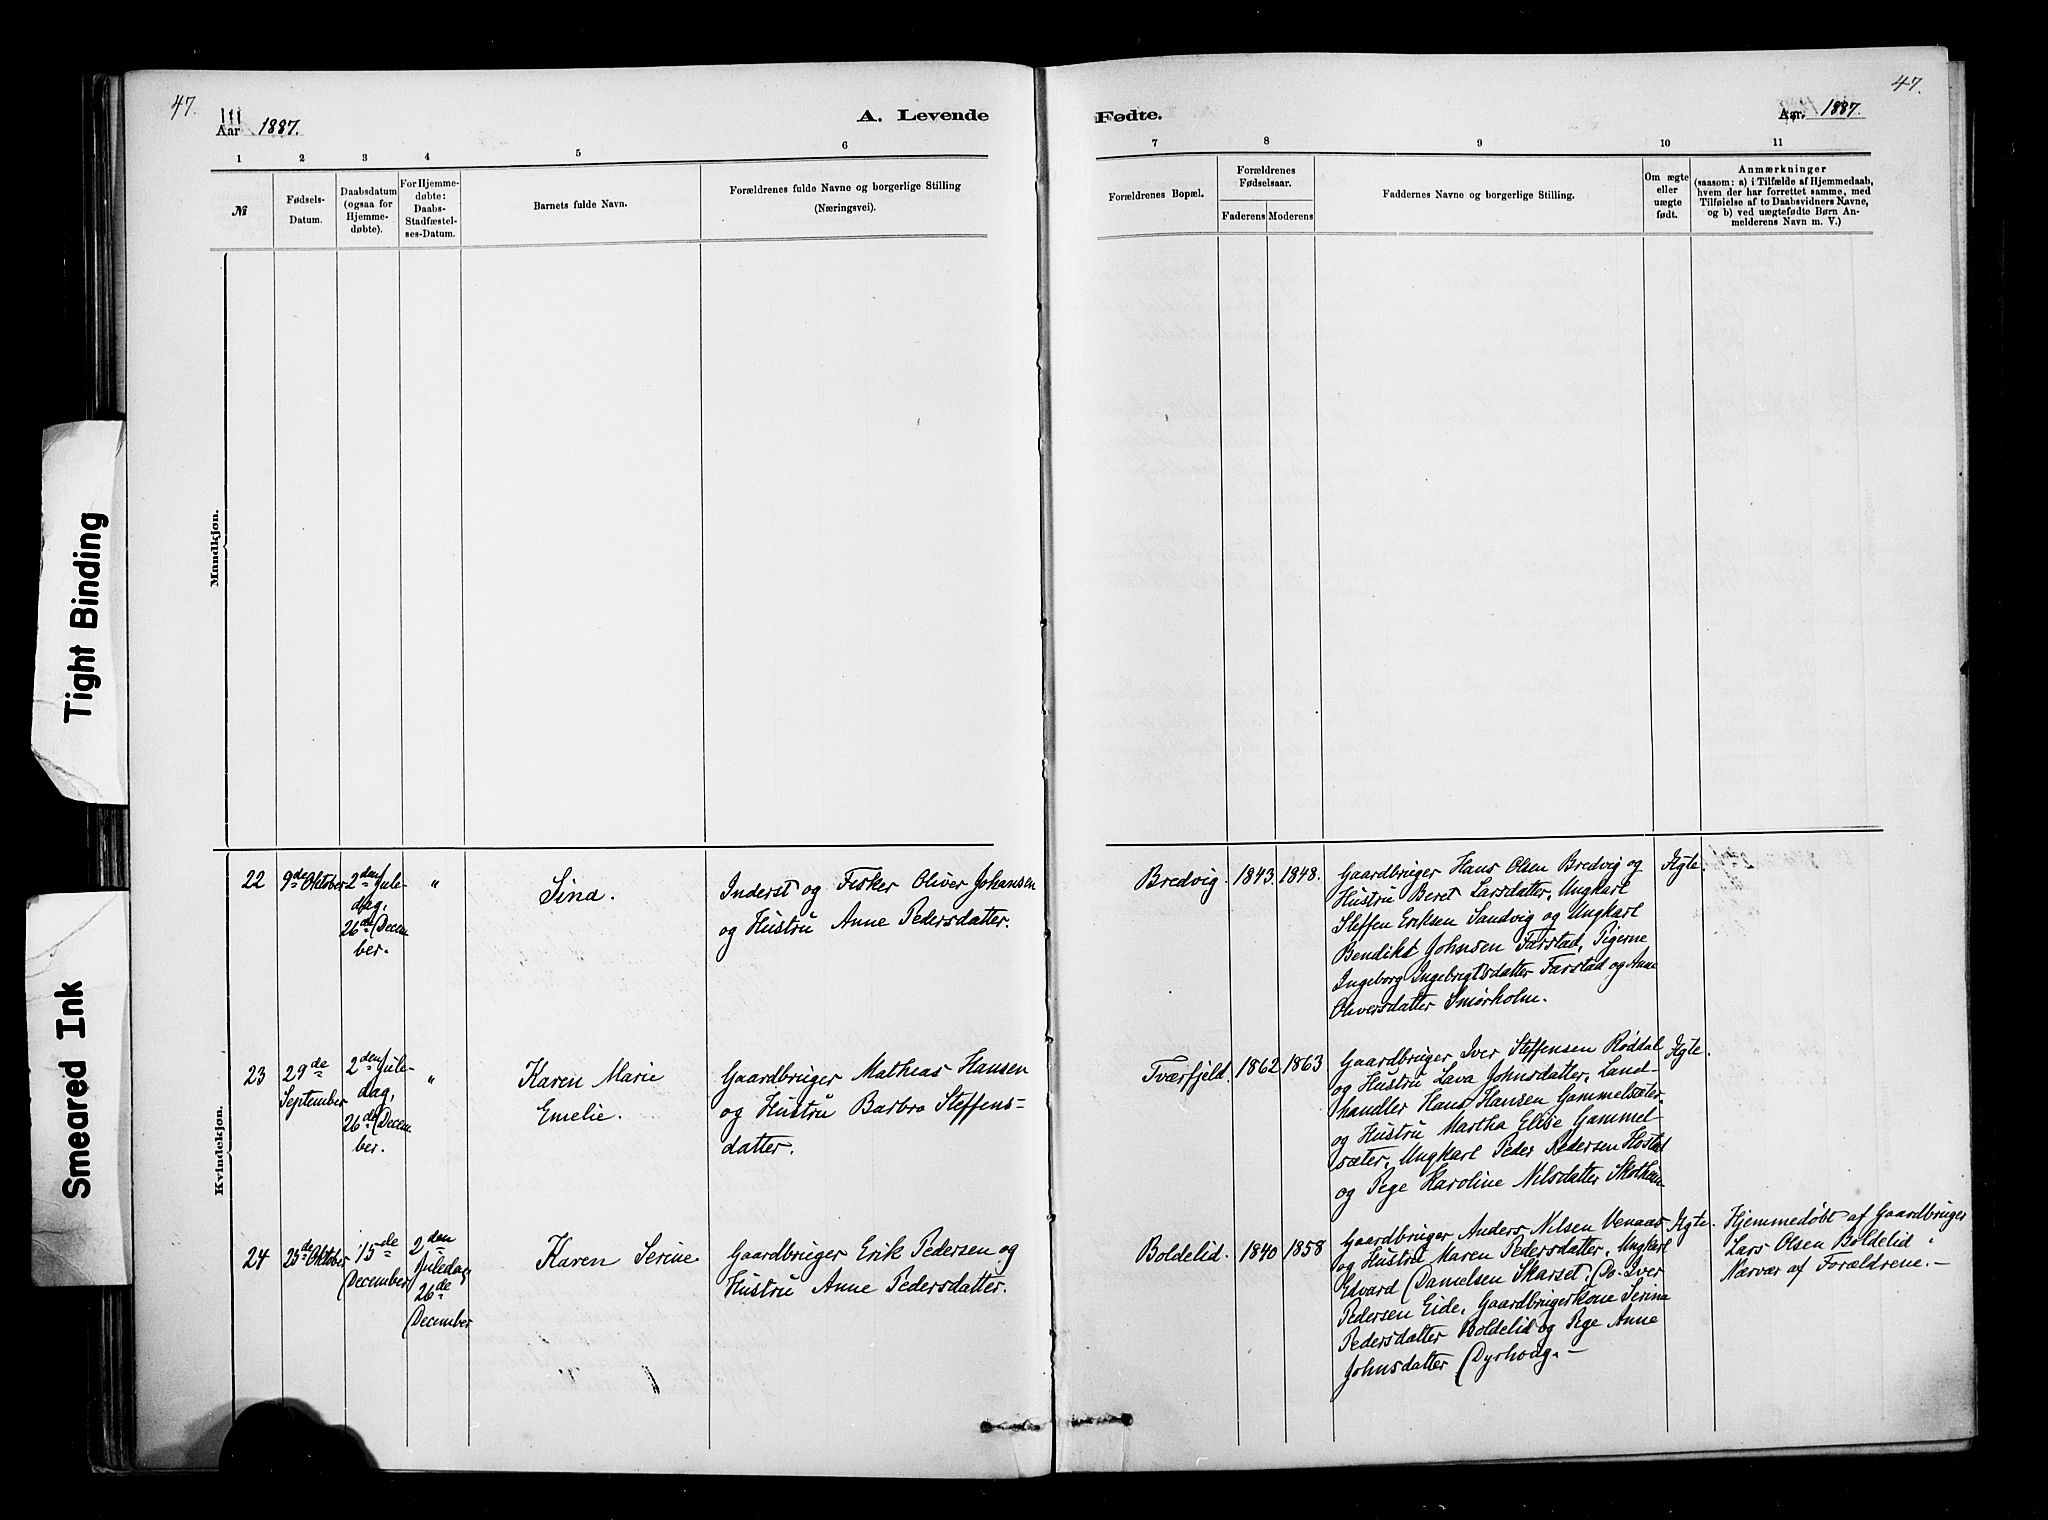 47.
Aar 1887.
A. Levende
Fødte.
Aar. 1887.
47.
1
2
3
4
5
6
7
8
9
10
11
№
Fødsels-
Datum.
Daabsdatum
(ogsaa for
Hjemme-
døbte).
For Hjemme-
døbte:
Daabs-
Stadfæstel-
ses-Datum.
Barnets fulde Navn.
Forældrenes fulde Navne og borgerlige Stilling
(Næringsvei).
Forældrenes Bopæl.
Forældrenes
Fødselsaar.
Faderens
Moderens
Faddernes Navne og borgerlige Stilling.
Om ægte
eller
uægte
født.
Anmærkninger
(saasom: a) i Tilfælde af Hjemmedaab,
hvem der har forrettet samme, med
Tilføielse af to Daabsvidners Navne,
og b) ved uægtefødte Børn An-
melderens Navn m. V.)
Mandkjøn.
Tight Binding
Smeared Ink
Kvindekjøn.
22
9de Oktober
2den Jule-
dag,
26de Decem
ber.
"
Sina.
Inderst og Fisker Oliver Johansen
og Hustru Anne Pedersdatter.
Bredvig.
1843.
1848.
Gaardbruger Hans Olsen Bredvig og
Hustru Beret Larsdatter, Ungkarl
Steffen Eriksen Sandvig og Ungkarl
Bendikt Johnsen Farstad, Pigerne
Ingeborg Ingebrigtsdatter Farstad og Anne
Oliversdatter Smørholm.
Ægte.
23
29de
September
2den Jule-
dag,
26de Decem
ber.
"
Karen Marie
Emelie.
Gaardbruger Mathias Hansen
og Hustru Barbro Steffens=
datter.
Tværfjeld.
1862
1863
Gaardbruger Iver Steffensen Røddal
og Hustru Lava Johnsdatter, Land-
handler Hans Hansen Gammelsæter
og Hustru Martha Elise Gammel-
sæter, Ungkarl Peder Pedersen Hostad
og Pige Karoline Nilsdatter Skotheim
Ægte.
24
25de Oktober
15de
December
2den
Juledag
26de
December
Karen Serine
Gaardbruger Erik Pedersen og
Hustru Anne Pedersdatter.
Boldelid.
1840
1858
Gaardbruger Anders Nilsen Venaas
og Hustru Maren Pedersdatter, Ungkarl
Edvard Danielsen Skarset. Do. Iver
Pedersen Eide, Gaardbrugerkone Serina
Pedersdatter Boldelid og Pige Anne
Johnsdatter Dyrhoug.—
Ægte.
Hjemmedøbt af Gaardbruger
Lars Olsen Boldelid i
Nærvær af Forældrene.—